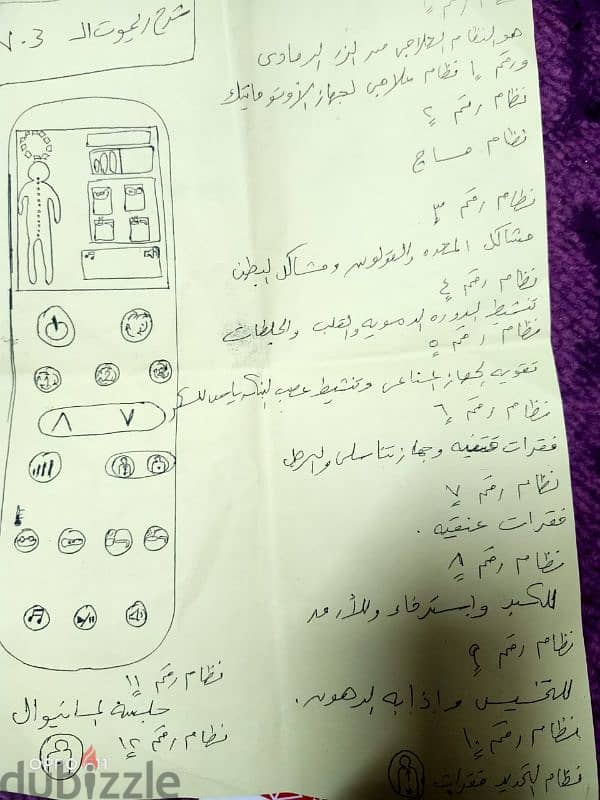 شرح ريموت الـ V.3
هو النظام العلاجى من الزر الرمادى
ورقم ١ نظام علاجى لجهاز الأوتوماتيك
نظام رقم ٢
نظام مساج
نظام رقم ٣
مشاكل المعده والقولون ومشاكل البطن
نظام رقم ٤
تنشيط الدوره الدمويه والقلب والجلطات
نظام رقم ٥
تقويه الجهاز المناعى وتنشيط عصب البنكرياس للسكر
نظام رقم ٦
فقرات قطنيه وجهاز تناسلى والرحم
نظام رقم ٧
فقرات عنقيه .
نظام رقم ٨
للكبد واسترخاء وللأرق
نظام رقم ٩
للتخسيس واذابه الدهون .
نظام رقم ١٠
نظام لتحديد فقرات
نظام رقم ١١
جلسة المانيوال
نظام رقم ١٢
OPPO A11
dubizzle